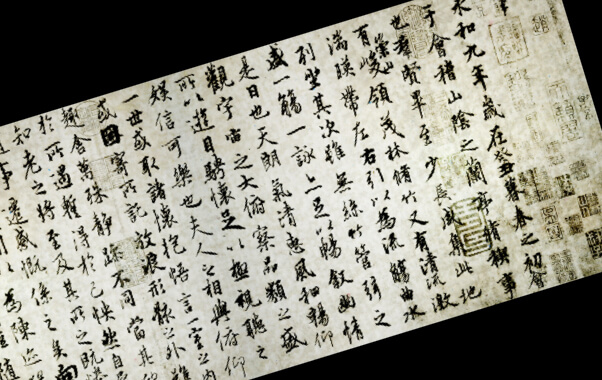 永和九年歲在癸丑暮春之初會
于會稽山陰之蘭亭脩稧事
也羣賢畢至少長咸集此地
有崇山峻領茂林脩竹又有清流激
湍暎帶左右引以為流觴曲水
列坐其次雖無絲竹管弦之
盛一觴一詠亦足以暢敘幽情
是日也天朗氣清惠風和暢仰
觀宇宙之大俯察品類之盛
所以遊目騁懷足以極視聽之
娛信可樂也夫人之相與俯仰
一世或取諸懷抱悟言一室之內
或因寄所託放浪形骸之外雖
趣舍萬殊靜躁不同當其
於所遇蹔得於己怏然自
知老之將至及其所之既惓
事遷感慨係之矣向
以為陳迹